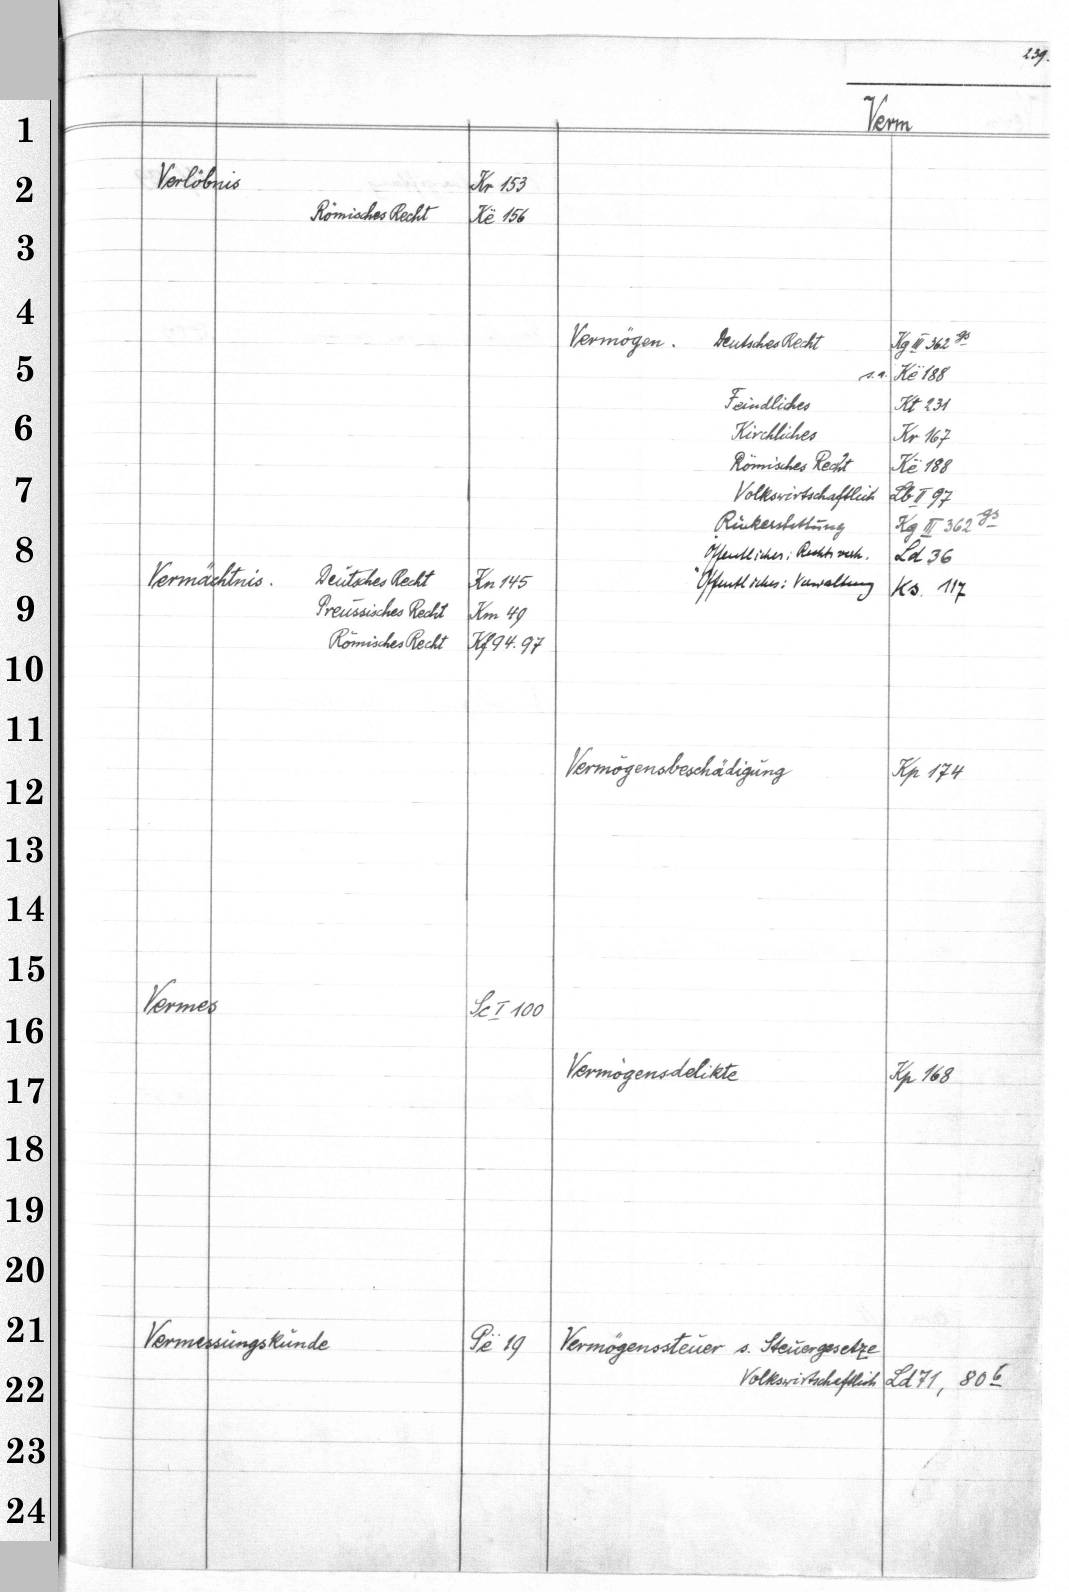 239.
Verm
1
2
3
4
5
6
7
8
9
10
11
12
13
14
15
16
17
18
19
20
21
22
23
24
Verlöbnis Kr 153
Römisches Recht Kë 156
Vermächtnis. Deutsches Recht Kn 145
Preussisches Recht Km 49
Römisches Recht Kf 94. 97
Vermes Sc I 100
Vermessungskunde Pë 19
Vermögen. Deutsches Recht Kg III 362 gs
s.a. Kë 188
Feindliches Kt 231
Kirchliches Kr 167
Römisches Recht Kë 188
Volkswirtschaftlich Lb II 97
Rückerstattung Kg III 362 gs
Öffentliches: Rechts Ld 36
Öffentliches: Verwaltung Ks. 117
Vermögensbeschädigung Kp 174
Vermögensdelikte Kp 168
Vermögenssteuer s. Steuergesetze
Volkswirtschaftlich Ld 71, 80